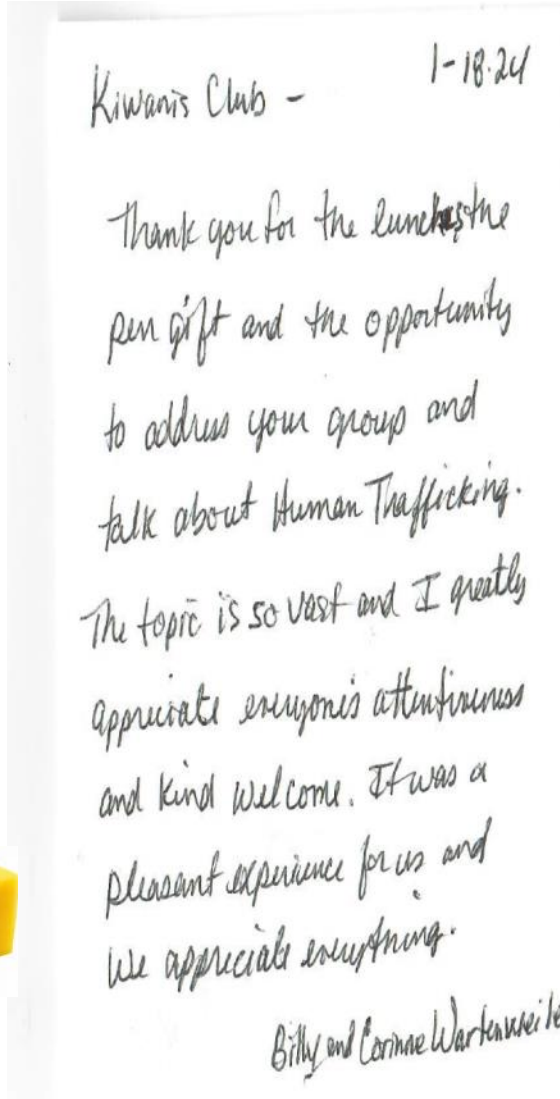 1-18-24
Kiwanis Club -
Thank you for the lunches, the
pen gift and the opportunity
to address your group and
talk about Human Trafficking.
The topic is so vast and I greatly
appreciate everyone's attentiveness
and kind welcome. It was a
pleasant experience for us and
we appreciate everything.
Billy and Corinne